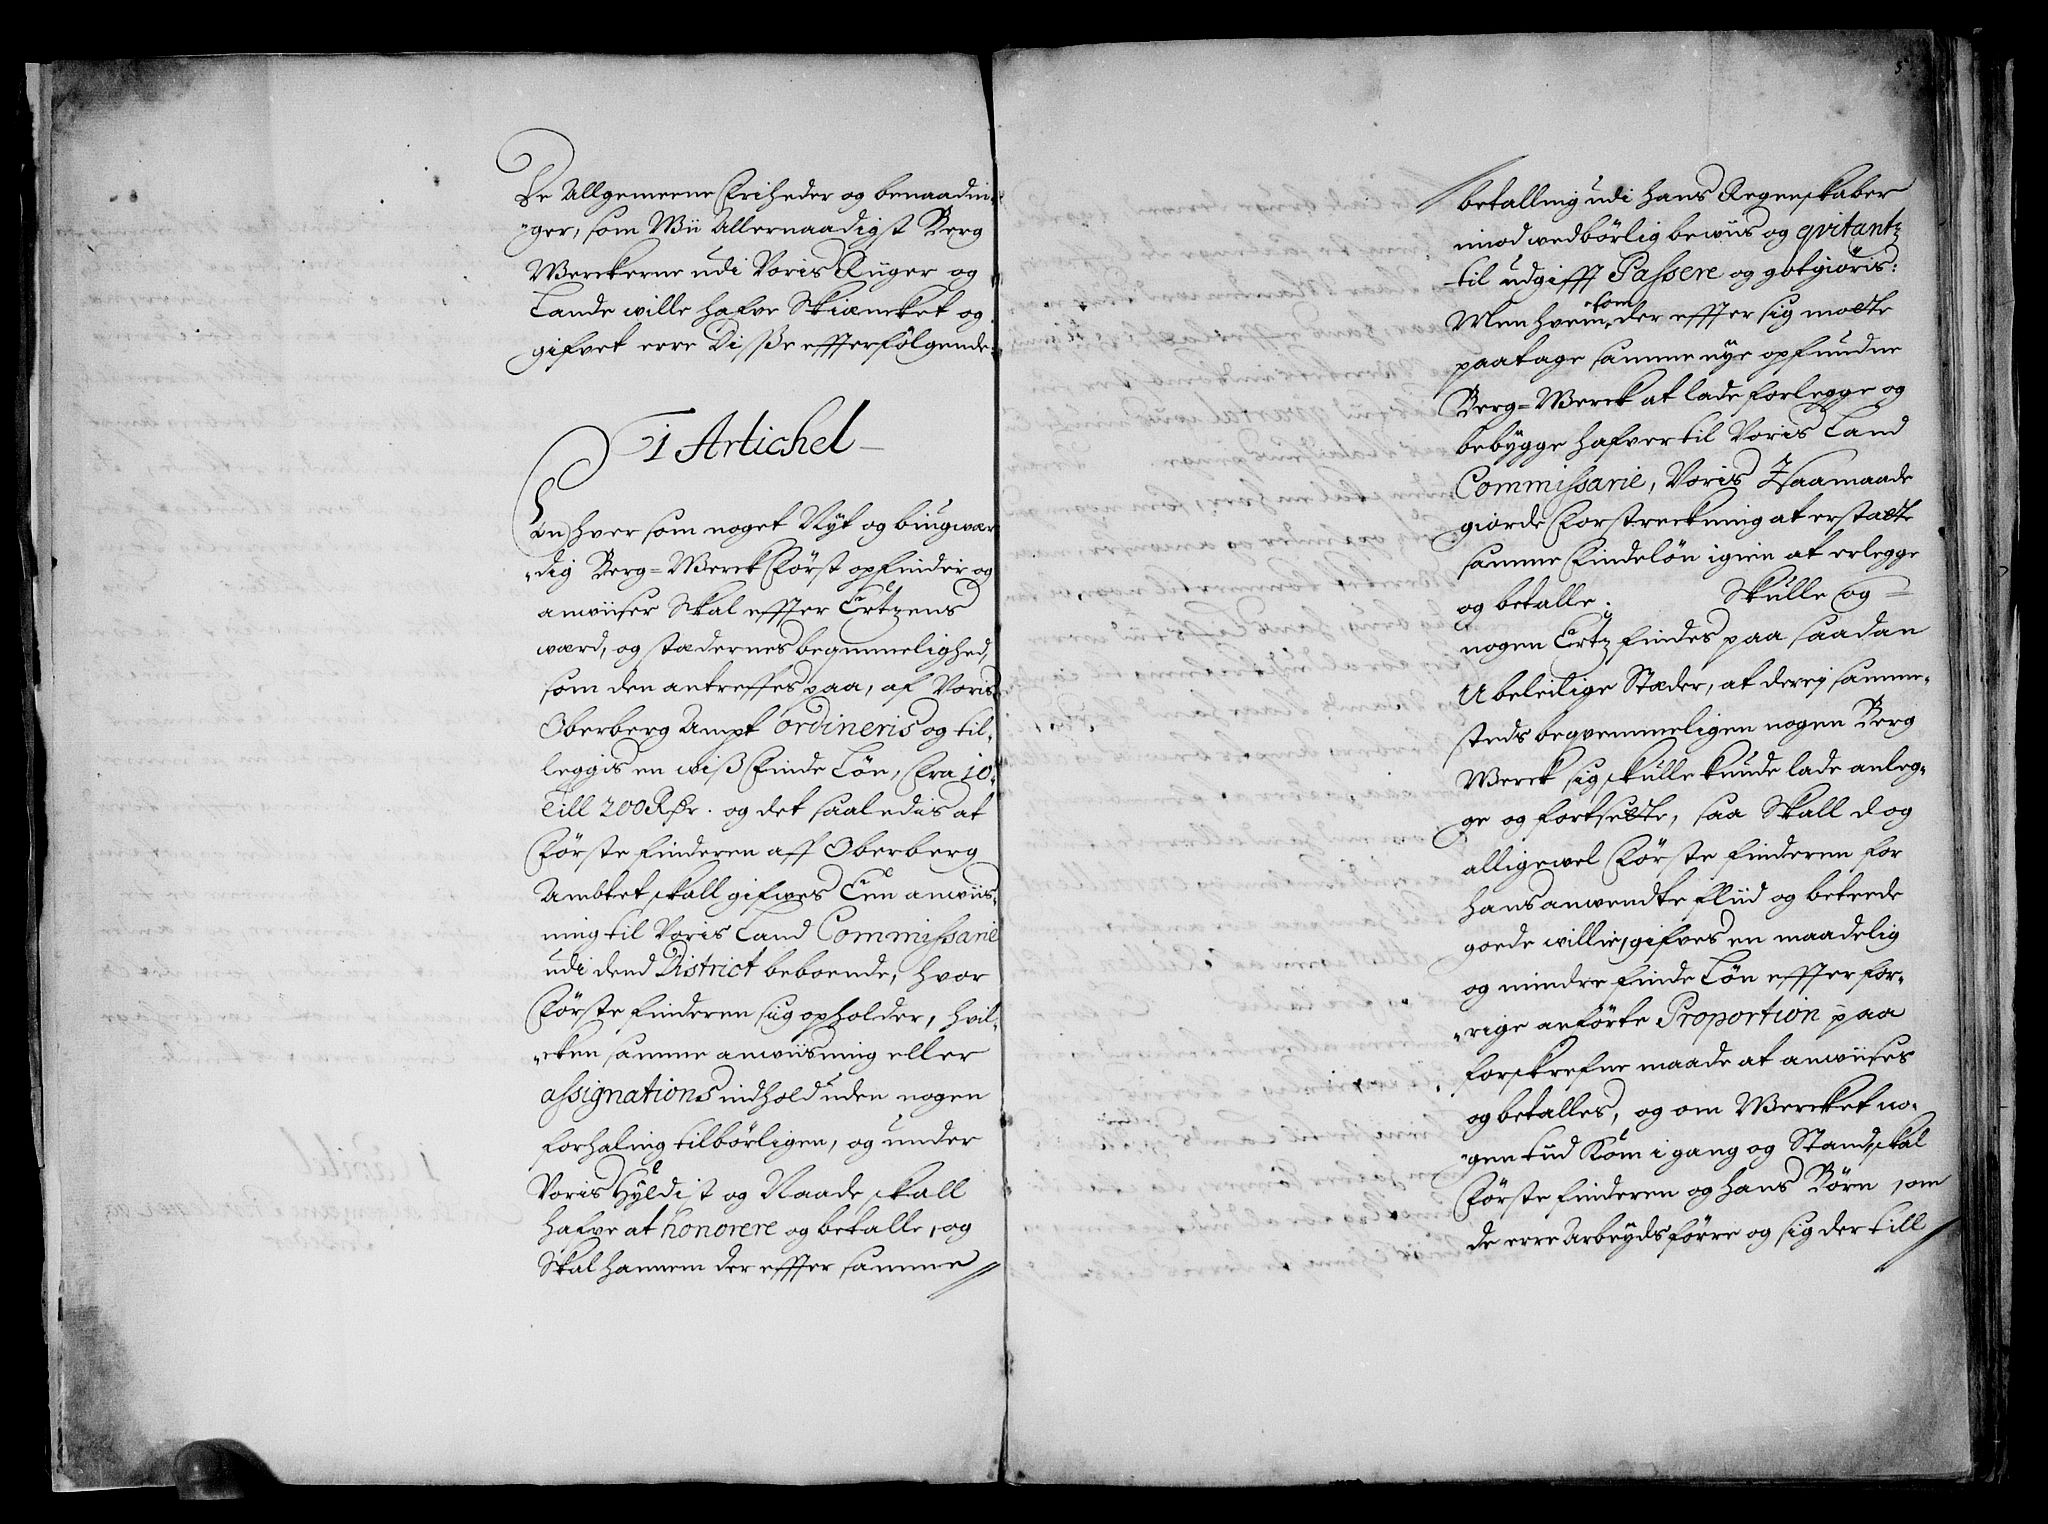 De Allgemeene Friheder og benaadin-
ger, som Wii Allernaadigst Berg
Werckerne udi Voris Riiger og
Lande wille hafve Skiæncket og
gifvet erre Disße effterfølgende:
1 Artichel
En hver som noget Nyt og biugwær
dig Berg=Werck Først opfinder og
anwiiser Skal effter Ertzens
wærd, og stædernes beqvmmelighed,
som den antreffes paa, af Voris
Oberberg Ampt ordineris og til-
leggis en wiß Finde Løn, Fra 10.
Till 200 Rdr. og det saaledis at
Første finderen aff Oberberg
Ambtet skall gifwes Een anwiis-
ning til Voris Land Commissarie
udi dend District beboende, hvor
Første finderen sig opholder, hvil-
cken samme anwiisning eller
assignations indhold uden nogen
forhaling tilbørligen, og under
Voris Hyldist og Naade skall
hafve at honorere og betalle, og
Skal hannem der effter samme
5
betalling udi hans Regenskaber
imod wedbørlig bewiis og qvitantz
til udgifft Passere og gotgiøris:
Men hvem som der effter sig motte
paatage samme nye opfundne
Berg=Werck at lade forlegge og
bebygge hafver til Voris Land
Commissarie, Voris I saamaade
giorde Forstreckning at erstatte
samme Findeløn igien at erlegge
og betalle. Skulle og
nogen Ertz findes paa saadan
Ubeleilige Stæder, at derej samme-
steds beqvemmeligen nogen Berg
Werck sig skulle kunde lade anleg-
ge og fortsætte, saa Skall dog
alligewel Første finderen for
hans anwendte fliid og beteede
goede willie, gifves en maadelig
og mindre finde Løn effter for-
rige anførte Proportion paa
forskrefne maade at anwiises
og betalles, og om Wercket no-
gen tiid Kom i gang og Stand, skal
Første finderen og hans Børn som
de erre Arbeyds førre og sig der till